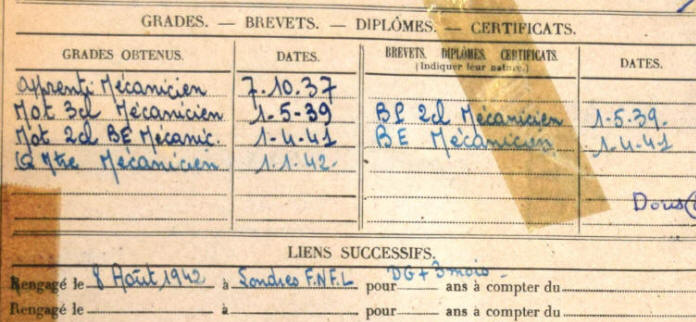 GRADES. — BREVETS. — DIPLÔMES. — CERTIFICATS.
GRADES OBTENUS. DATES. BREVETS, DIPLÔMES, CERTIFICATS. (Indiquer leur nature.) DATES.
apprenti Mécanicien 7.10.37
Mot 3cl Mécanicien 1-5-39 BP 2cl Mécanicien 1-5-39.
Mot 2cl BE Mécanic. 1-4-41 BE Mécanicien 1-4-41
Q Mtre Mécanicien 1.1.42.
LIENS SUCCESSIFS.
Rengagé le 8 Août 1942 à Londres F.N.F.L pour DG + 3 mois - ans à compter du
Rengagé le à pour ans à compter du